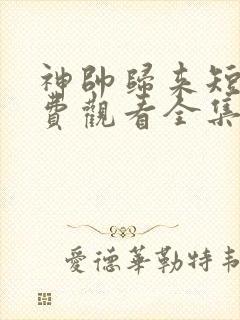 神帥歸來短
費觀看全集
愛德華勒特韋